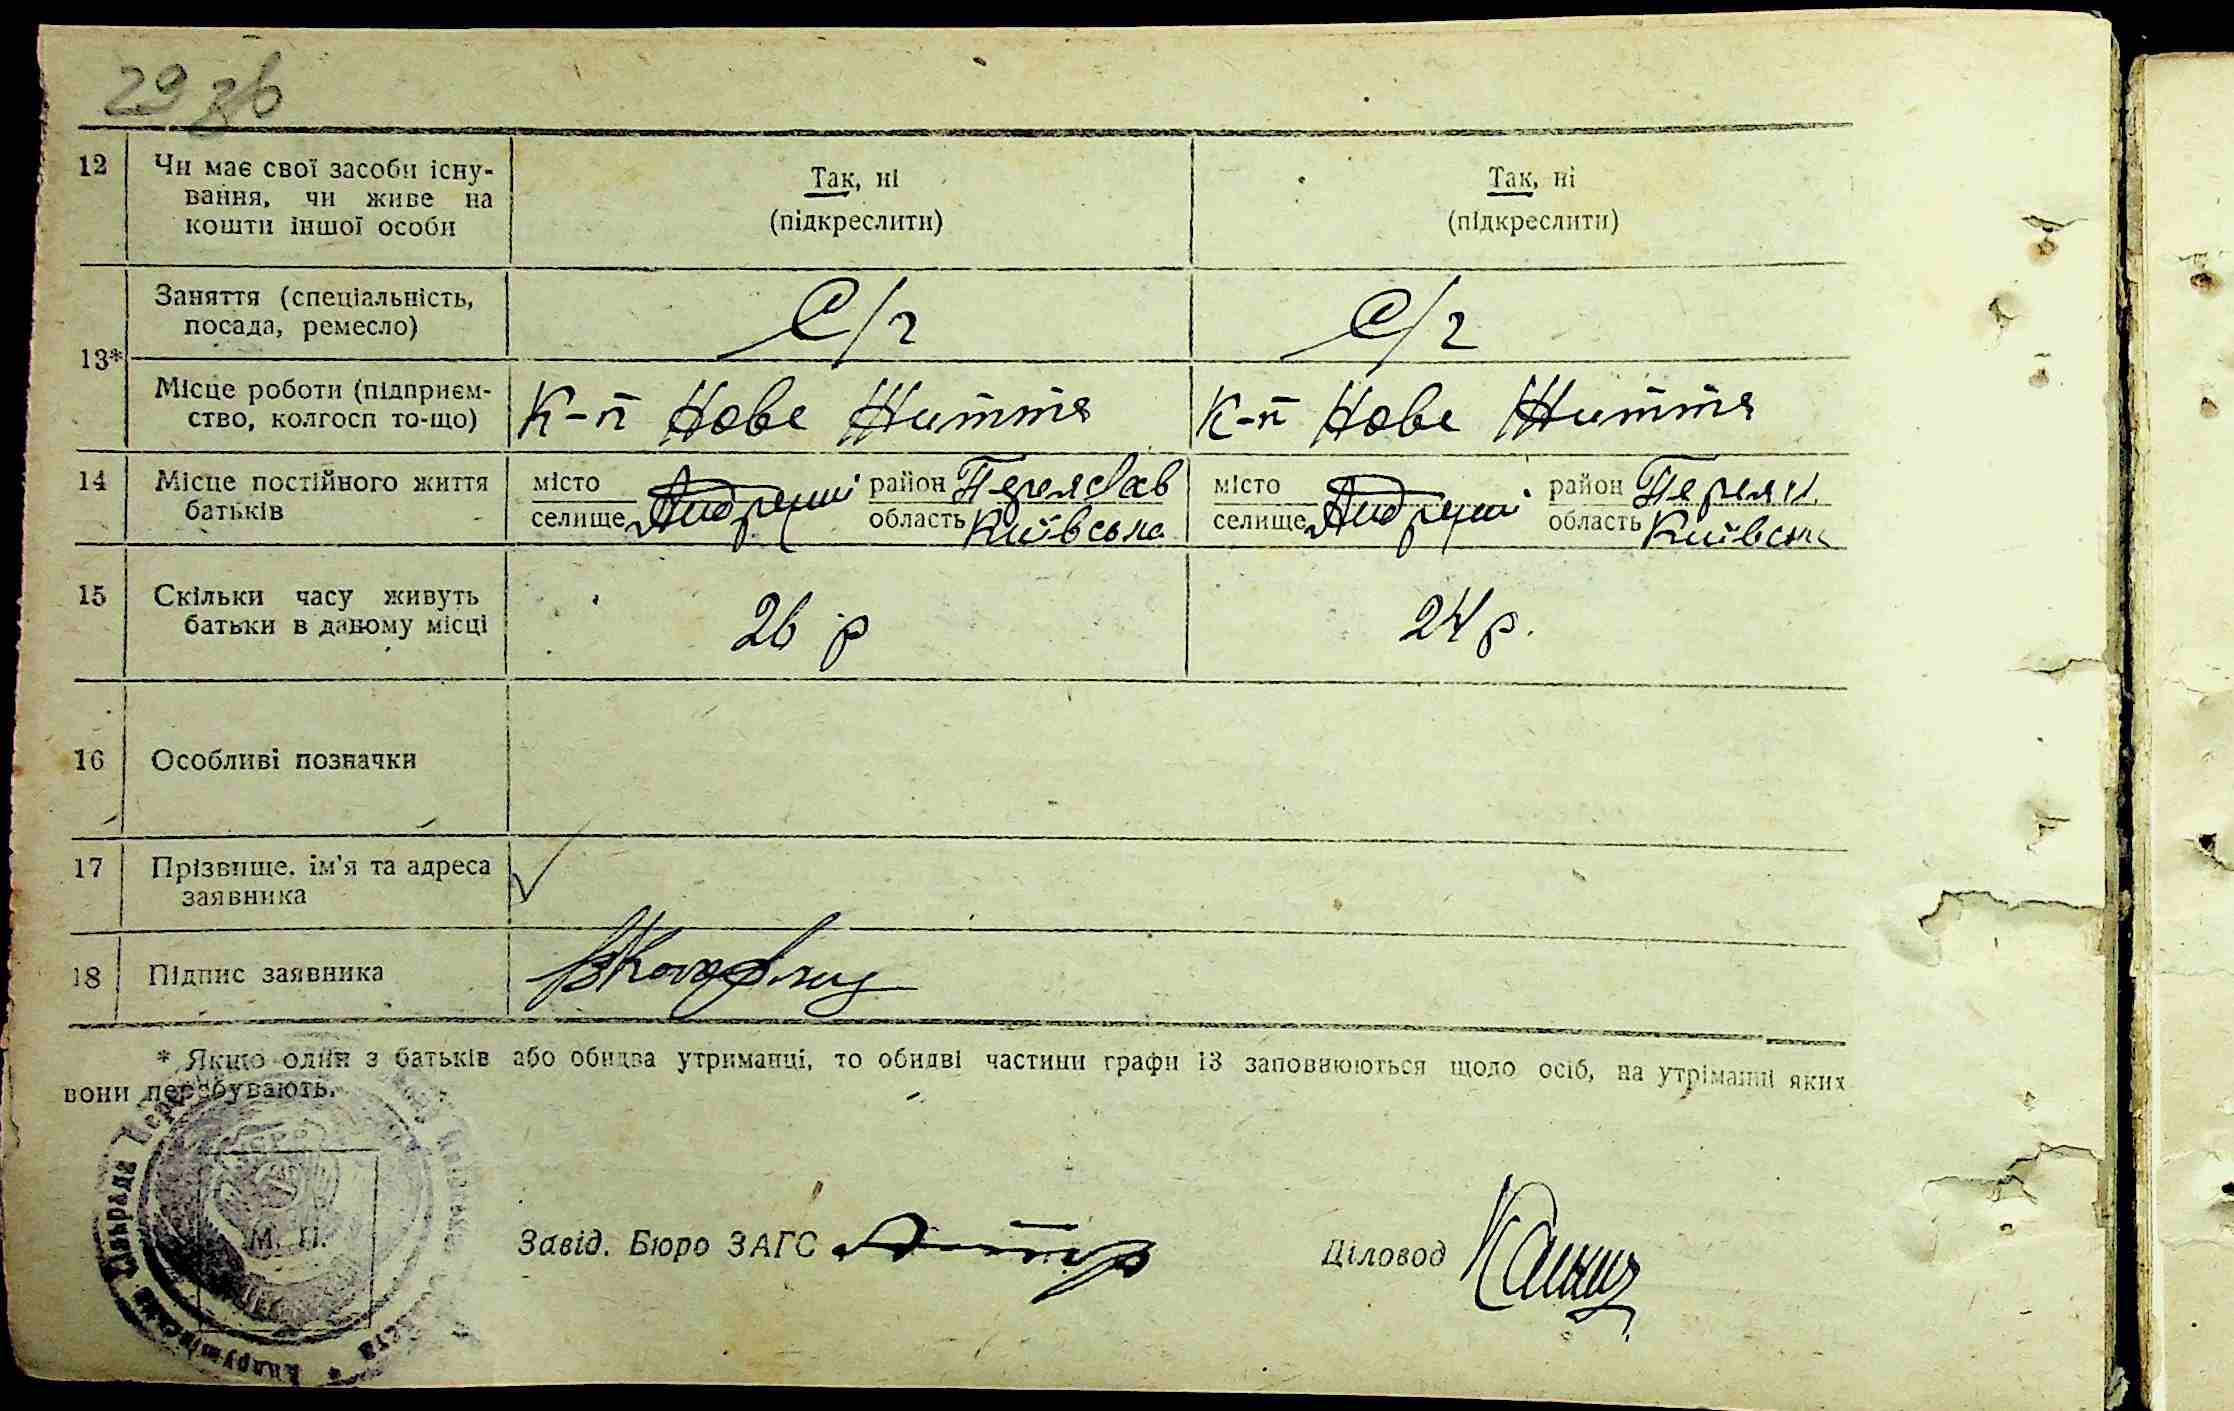 29 зв
12 Чи має свої засоби існу-
вання, чи живе на
кошти іншої особи
Так, ні
(підкреслити)
Так, ні
(підкреслити)
13*
Заняття (спеціальність,
посада, ремесло)
С/г
С/г
Місце роботи (підприєм-
ство, колгосп то-що)
К-п Нове Життя
К-п Нове Життя
14 Місце постійного життя
батьків
місто
селище Андруші
район Переяслав
область Київська
місто
селище Андруші
район Переял.
область Київська
15 Скільки часу живуть
батьки в даному місці
26 р
24 р.
16 Особливі позначки
17 Прізвище. ім'я та адреса
заявника
18 Підпис заявника
* Якщо один з батьків або обидва утриманці, то обидві частини графи 13 заповнюються щодо осіб, на утріманні яких
вони перебувають.
М. П.
Завід. Бюро ЗАГС
Діловод